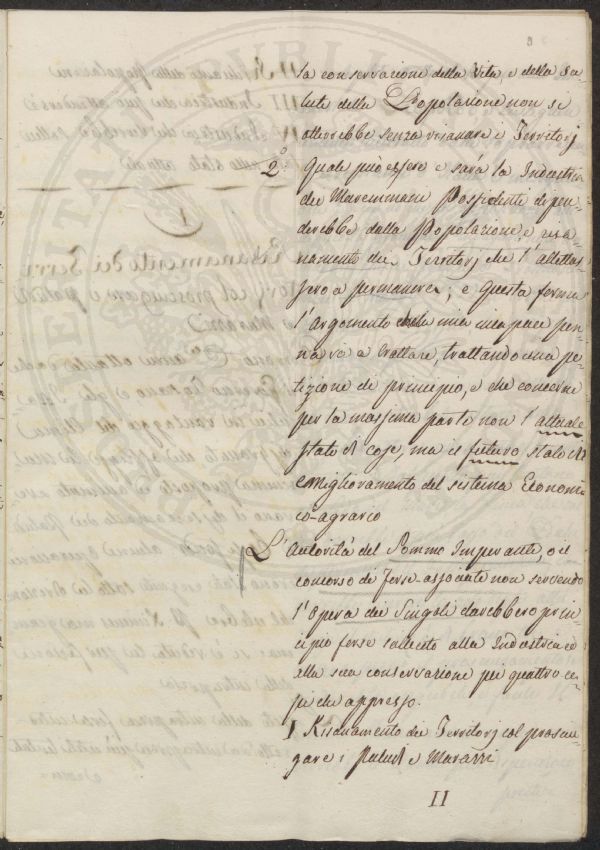 la conservazione della Vita, e della Sa=
lute della Popolazione non si
otterrebbe senza risanare i Territorj
2º Quale può essere e sarà la Industria
dei Maremmani Possidenti dipen=
derebbe dalla Popolazione, e risa=
namento dei Territorj che l'allettas=
sero a permanere; e questa forma
l'Argomento che la mia incapace pen=
na va a trattare, trattando una pe=
tizione di principio, e che concerne
per la massima parte non l'attuale
stato di cose, ma il futuro stato di
migliovamento del sistema Economi=
co-agrario
L'Autorità del Sommo Imperante, o il
concorso di forse associate non servendo
l'Opera dei Singoli darebbero prin=
cipio forse sollecito alla Industria ed
alla sua conservazione pei quattro ca=
pi che appresso.
I Risanamento dei Territorj col prosciu=
gare i Paludi e Marazzi
II